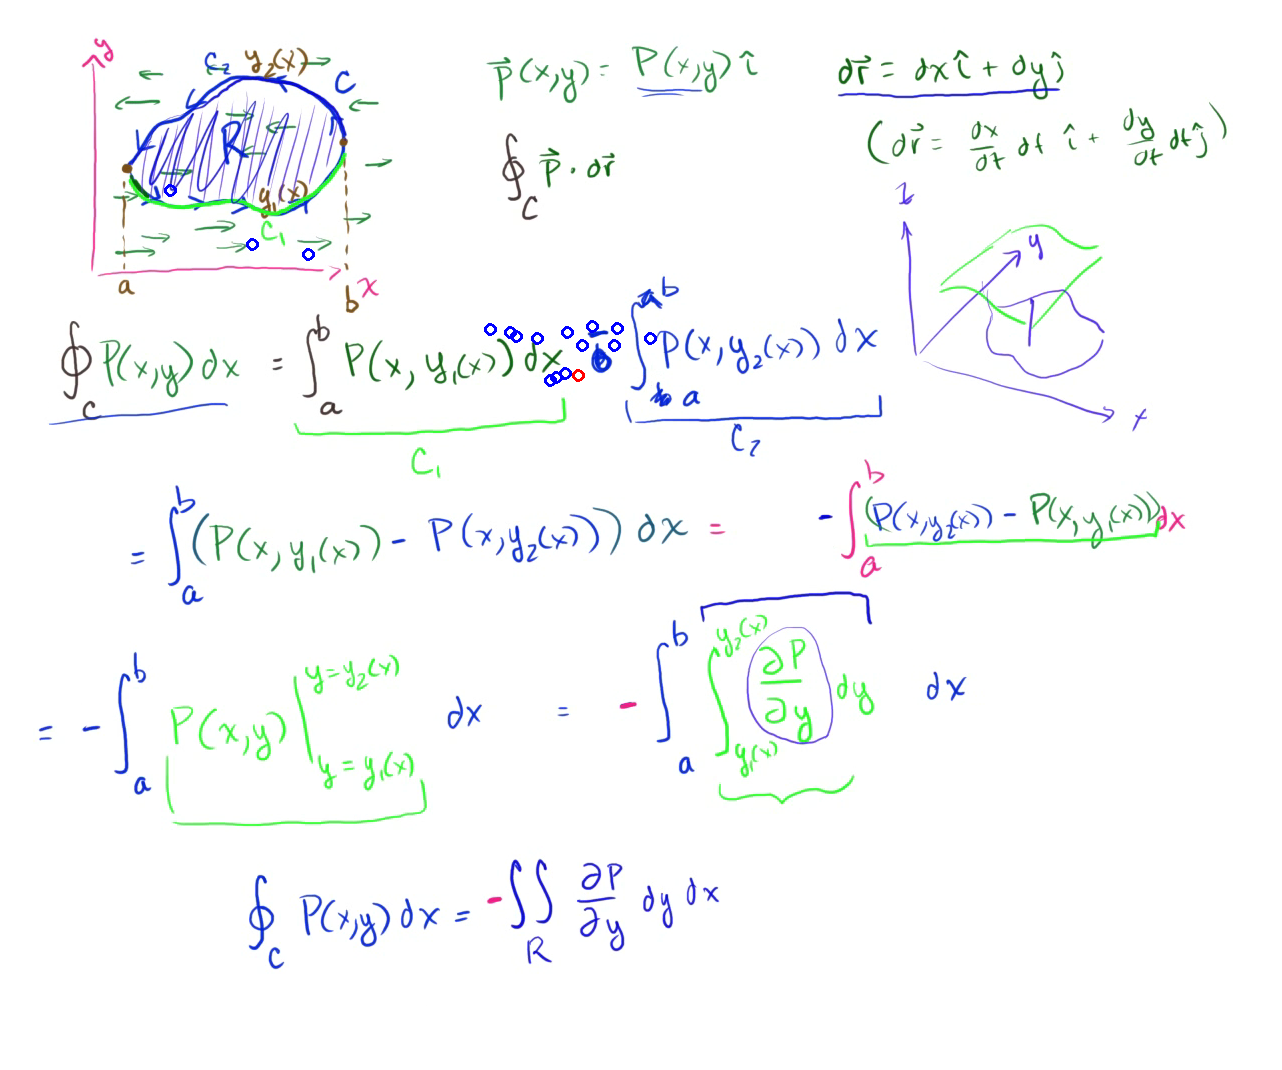 y
C₂ y₂(x)
C
R
y₁(x)
C₁
a
b x
P⃗(x,y) = P(x,y) î
dr⃗ = dx î + dy ĵ
(dr⃗ = dx/dt dt î + dy/dt dt ĵ)
∮_C P⃗ · dr⃗
z
y
x
∮_C P(x,y) dx = ∫_a^b P(x, y₁(x)) dx - ∫_a^b P(x, y₂(x)) dx
C₁
C₂
= ∫_a^b (P(x, y₁(x)) - P(x, y₂(x))) dx = - ∫_a^b (P(x, y₂(x)) - P(x, y₁(x))) dx
= - ∫_a^b P(x,y) |_{y=y₁(x)}^{y=y₂(x)} dx = - ∫_a^b ∫_{y₁(x)}^{y₂(x)} ∂P/∂y dy dx
∮_C P(x,y) dx = - ∬_R ∂P/∂y dy dx